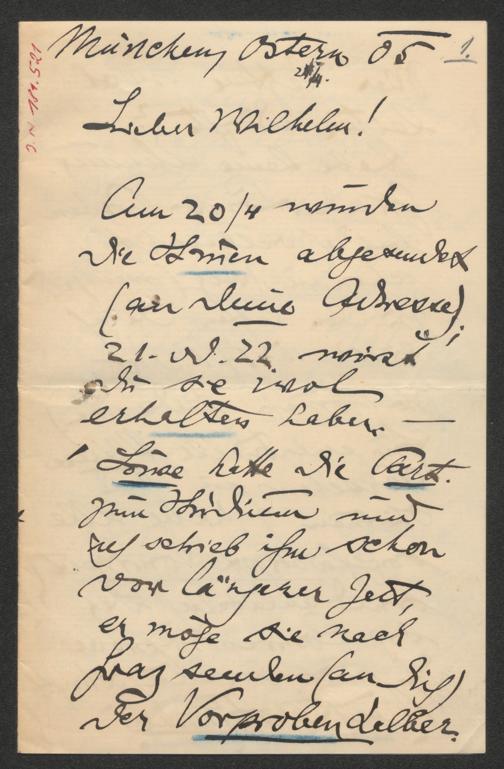 München, Ostern 05 1.
24/4.
I. N. 184.521
Lieber Wilhelm!
Am 20/4 wurden
die Stimmen abgesendet
(an deine Adresse);
21. od. 22 wirst
du sie wol
erhalten haben. —
Löwe hatte die Part.
zum Studium und
ich schrieb ihm schon
vor längerer Zeit,
er möge sie nach
Graz senden (an dich)
der Vorproben halber.